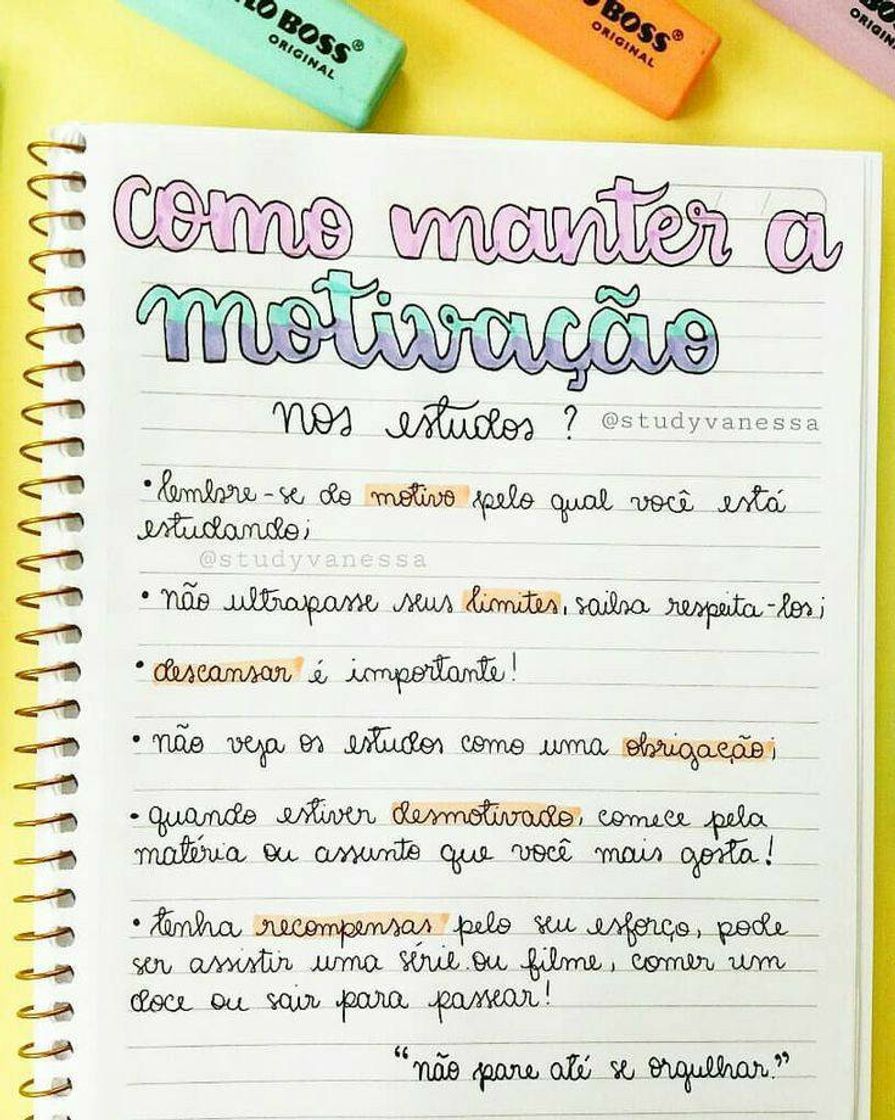 LO BOSS®
ORIGINAL
BOSS®
ORIGINAL
BOSS
ORIGIN
como manter a
motivação
nos estudos ? @studyvanessa
• lembre-se do motivo pelo qual você está
estudando;
@studyvanessa
• não ultrapasse seus limites, saiba respeita-los;
• descansar é importante!
• não veja os estudos como uma obrigação;
• quando estiver desmotivado, comece pela
matéria ou assunto que você mais gosta!
• tenha recompensas pelo seu esforço, pode
ser assistir uma série ou filme, comer um
doce ou sair para passear!
“não pare até se orgulhar.”